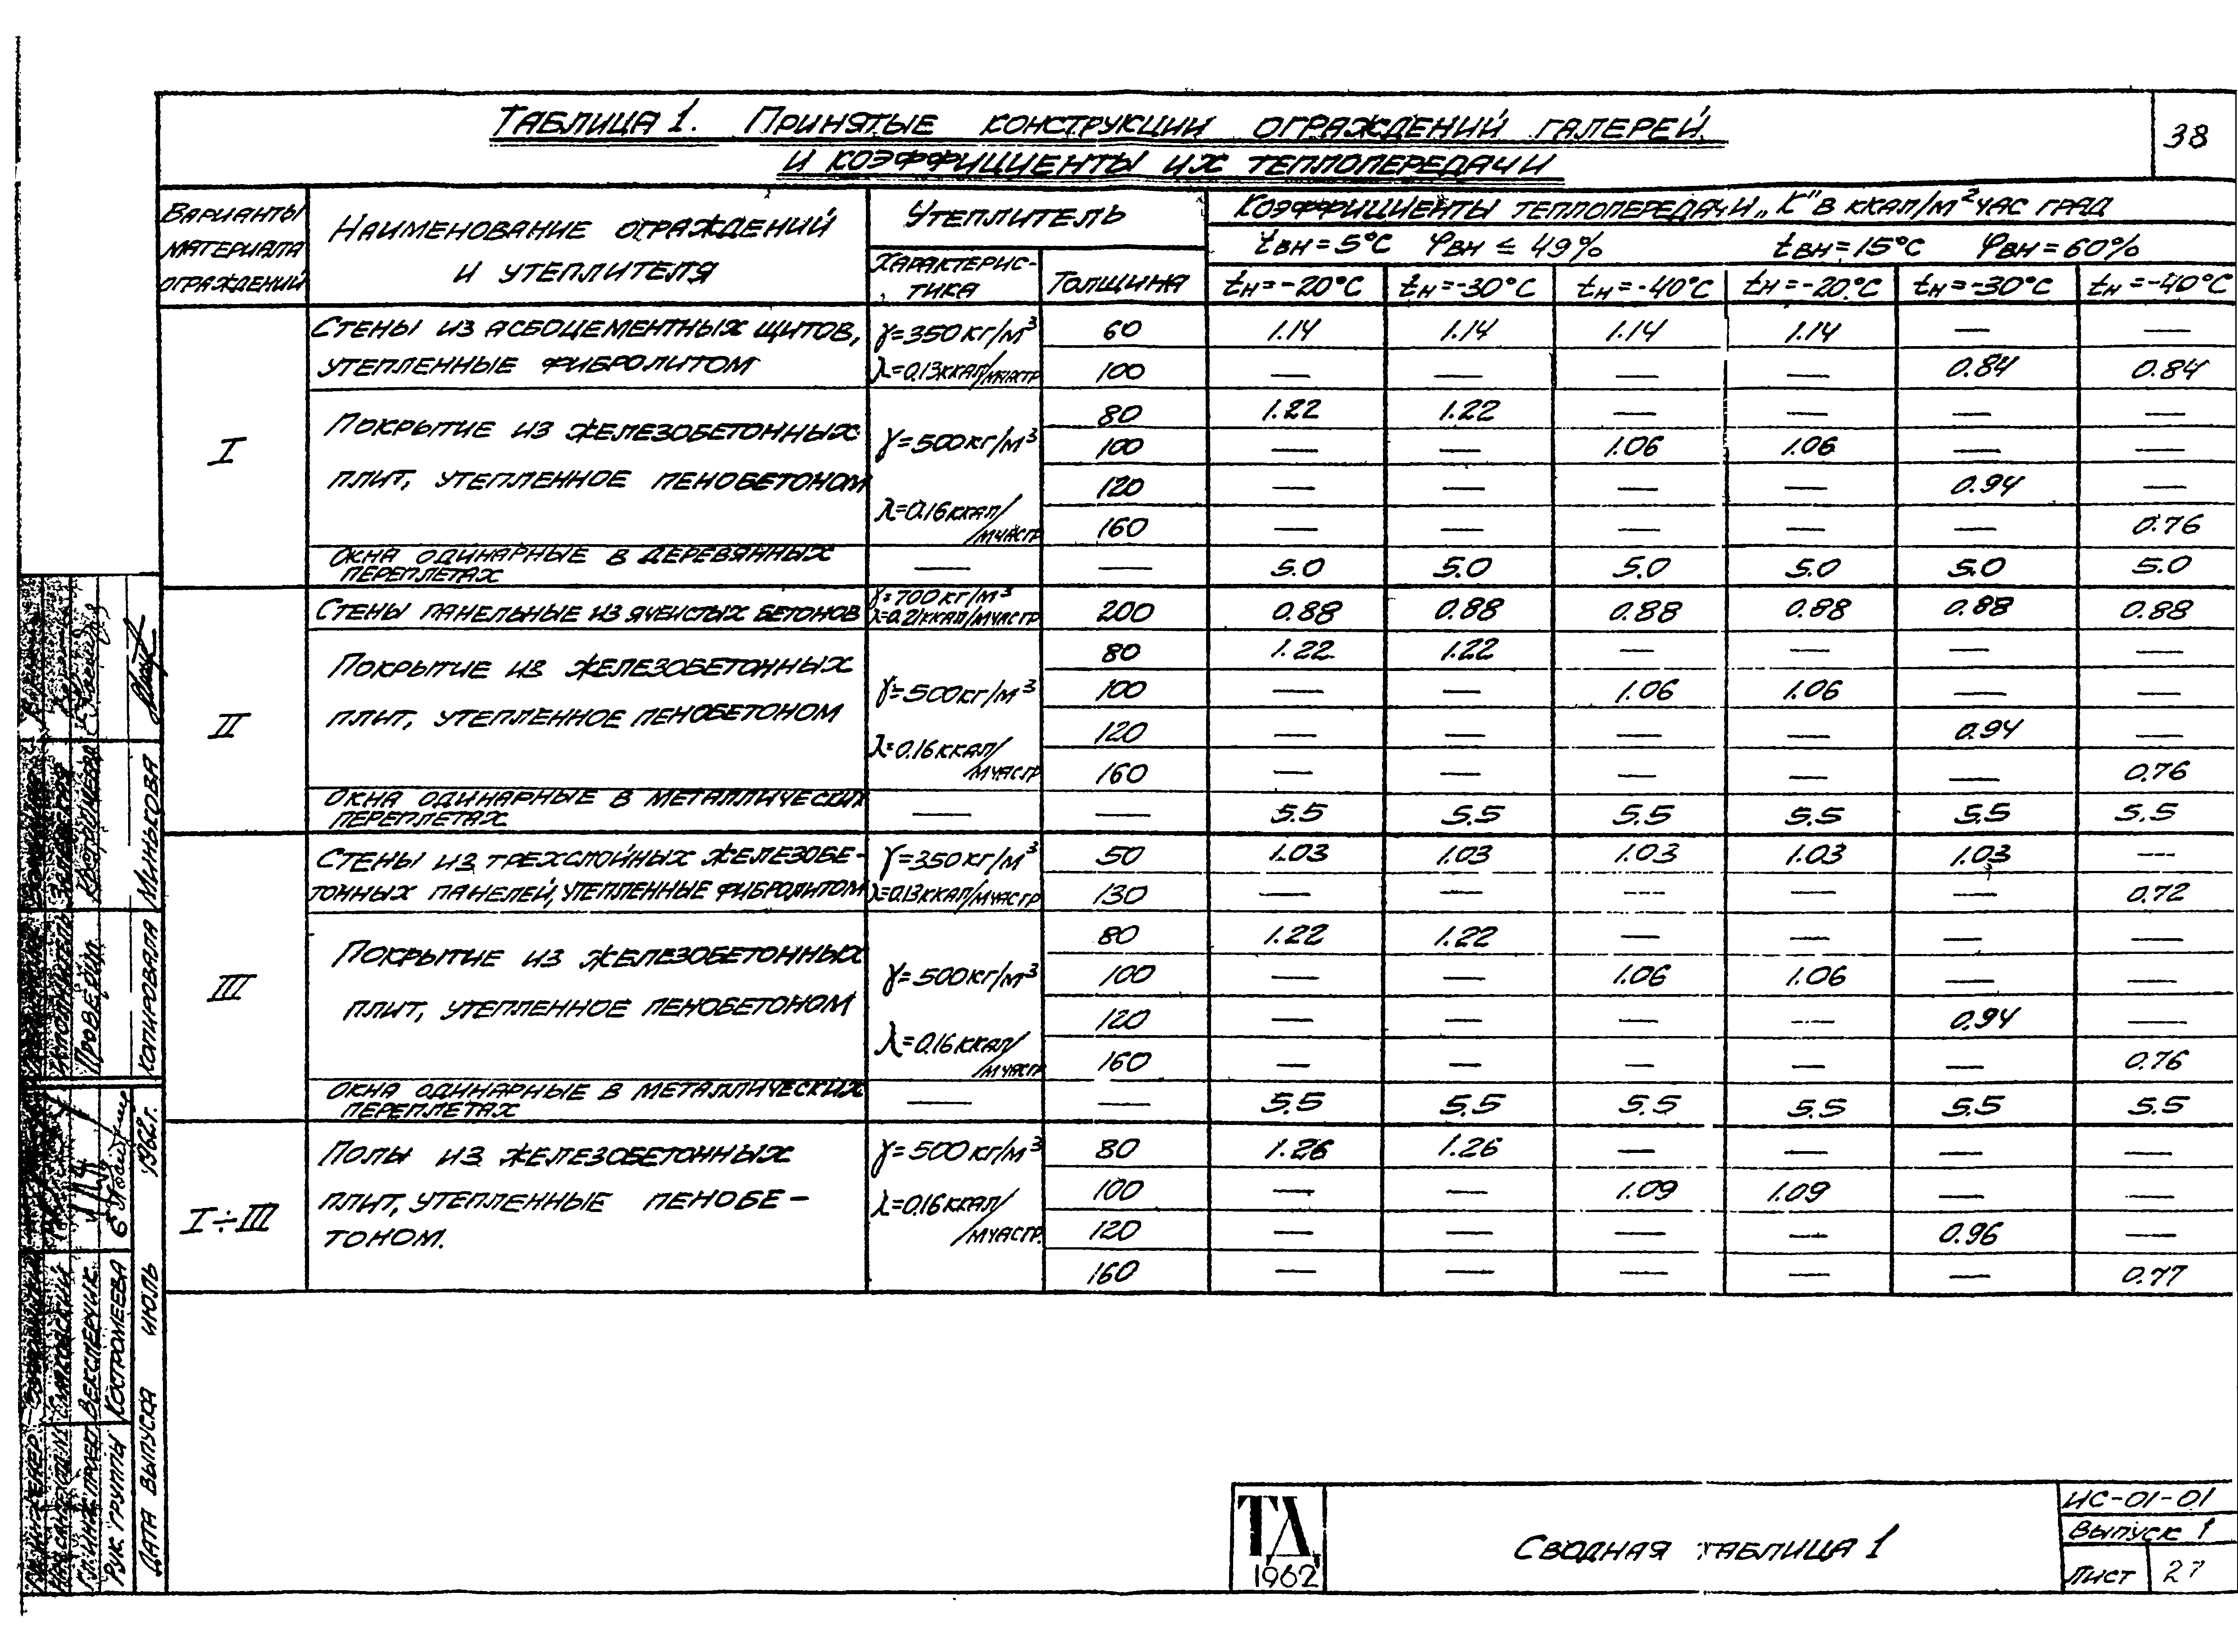 38
Таблица 1. Принятые конструкции ограждений галерей
и коэффициенты их теплопередачи
Варианты материала ограждений
Наименование ограждений и утеплителя
Утеплитель
Коэффициенты теплопередачи „К" в ккал/м² час град
Характерис-тика
Толщина
tвн=5°С φвн ≤ 49% tвн=15°С φвн=60%
tн=-20°С tн=-30°С tн=-40°С tн=-20°С tн=-30°С tн=-40°С
I
Стены из асбоцементных щитов,
утепленные фибролитом
γ=350кг/м³
λ=0.13ккал/мчасгр
60 1.14 1.14 1.14 1.14 — —
100 — — — — 0.84 0.84
Покрытие из железобетонных
плит, утепленное пенобетоном
γ=500кг/м³
λ=0.16ккал/мчасгр
80 1.22 1.22 — — — —
100 — — 1.06 1.06 — —
120 — — — — 0.94 —
160 — — — — — 0.76
Окна одинарные в деревянных
переплетах
— — 5.0 5.0 5.0 5.0 5.0 5.0
II
Стены панельные из ячеистых бетонов
γ=700кг/м³
λ=0.21ккал/мчасгр
200 0.88 0.88 0.88 0.88 0.88 0.88
Покрытие из железобетонных
плит, утепленное пенобетоном
γ=500кг/м³
λ=0.16ккал/мчасгр
80 1.22 1.22 — — — —
100 — — 1.06 1.06 — —
120 — — — — 0.94 —
160 — — — — — 0.76
Окна одинарные в металлических
переплетах
— — 5.5 5.5 5.5 5.5 5.5 5.5
III
Стены из трехслойных железобе-
тонных панелей, утепленные фибролитом
γ=350кг/м³
λ=0.13ккал/мчасгр
50 1.03 1.03 1.03 1.03 1.03 —
130 — — — — — 0.72
Покрытие из железобетонных
плит, утепленное пенобетоном
γ=500кг/м³
λ=0.16ккал/мчасгр
80 1.22 1.22 — — — —
100 — — 1.06 1.06 — —
120 — — — — 0.94 —
160 — — — — — 0.76
Окна одинарные в металлических
переплетах
— — 5.5 5.5 5.5 5.5 5.5 5.5
I÷III
Полы из железобетонных
плит, утепленные пенобе-
тоном.
γ=500кг/м³
λ=0.16ккал/мчасгр.
80 1.26 1.26 — — — —
100 — — 1.09 1.09 — —
120 — — — — 0.96 —
160 — — — — — 0.77
ТД
1962
Сводная таблица 1
ИС-01-01
Выпуск 1
Лист 27
Исполнитель
Проверил Костромеева
Копировала Минькова
Гл. инж. проект Векслерчик
Рук. группы Костромеева
Дата выпуска июль 1962г.